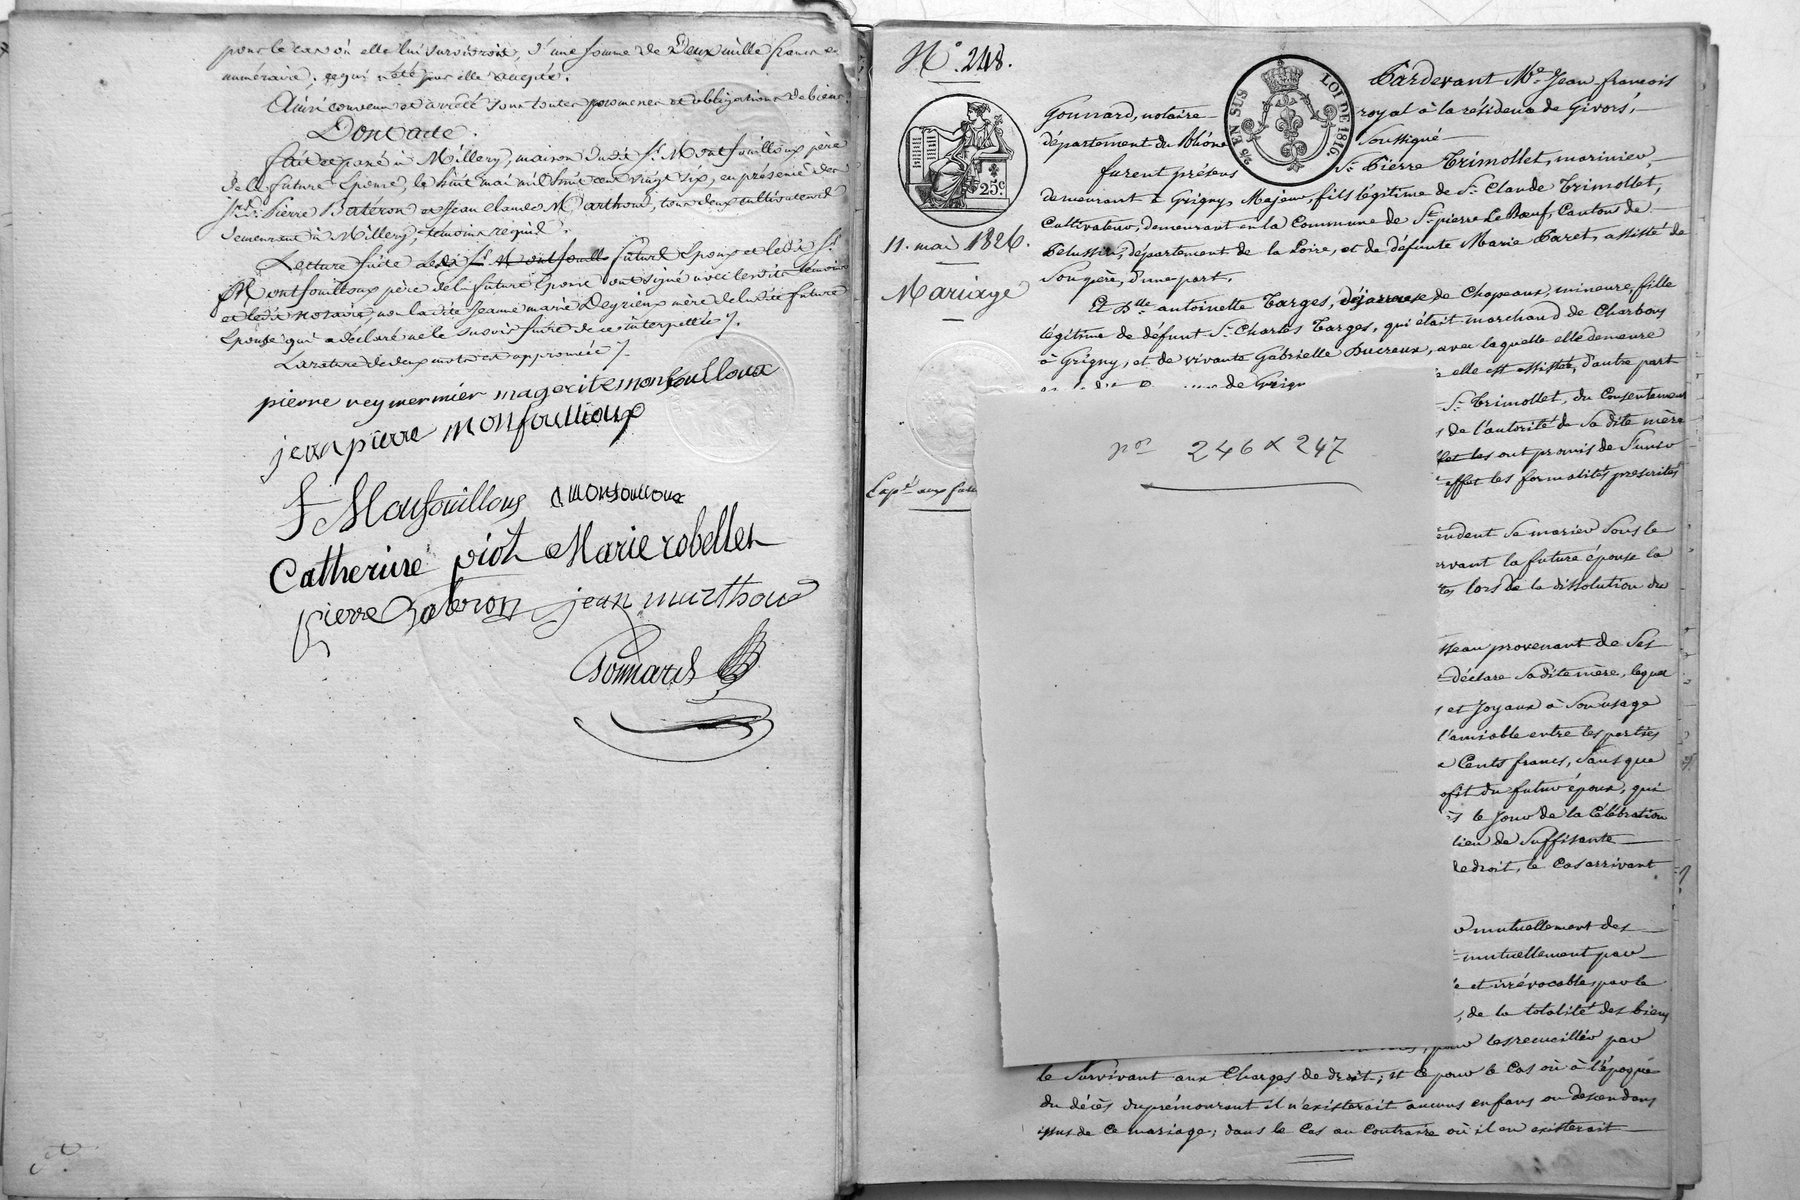 pour le cas où elle lui survivroit, d'une somme de Deux mille francs en
numéraire; ce qui a été par elle accepté.
Ainsi convenu et arrêté sous toutes promesses et obligations de biens.
Dont acte.
fait et passé à Millery, maison dudit Sr. Montfouilloux père
de la future épouse, le huit mai mil huit cent vingt six, en présence des
Srs. Pierre Batéron et Jean Claude Marthoud, tous deux cultivateurs
demeurant à Millery, témoins requis.
Lecture faite futurs époux et ledit Sr.
Montfouilloux père de la future épouse ont signé avec lesdits témoins
et ledit notaire, non ladite Jeanne marie Deyrieux mère de ladite future
épouse qui a déclaré ne le savoir faire de ce interpellée.
La rature de deux mots est approuvée
pierre reymermier magerite monfoulloux
jean pierre monfoullioux
f Monfouilloux a monfoulioux
Catherine piot Marie robellet
pierre Bateron jean marthoud
Gonnard
No. 248.
11. mai 1826.
Mariage
25 c
25 EN SUS
LOI DE 1816.
Pardevant Me. Jean françois
Gonnard, notaire royal à la résidence de Givors,
département du Rhône soussigné
furent présens Sr. Pierre Trimollet, marinier,
demeurant à Grigny, Majeur, fils légitime de Sr. Claude Trimollet,
Cultivateur, demeurant en la Commune de St. pierre Le Bœuf, Cantons de
Pélussin, département de la Loire, et de défunte Marie Paret, assisté de
Son père, d'une part,
Et Dlle. antoinette Targes, de Chapeaux, mineure fille
légitime de défunt Sr. Charles Targes, qui était marchand de Charbons
à Grigny, et de vivante Gabrielle Ducreux, avec laquelle elle demeure
de Grigny
elle est assistée, d'autre part
Sr. Trimollet, du Consentement
de l'autorité de Sa dite mère
les ont promis de S'unir
effet les formalités prescrites
Exp.é aux
Se marier Sous le
la future épouse la
lors de la dissolution du
provenant de Ses
déclare Sa dite mère, lequel
et Joyaux à Son usage
l'amiable entre les parties
Cents francs, Sans que
du futur époux, qui
le Jour de la Célébration
lieu de Suffisante
de droit, le Cas arrivant
mutuellement des
mutuellement par
et irrévocables par le
de la totalité des biens
pour les recueillir par
le Survivant aux Charges de droit; et ce pour le Cas où à l'époque
du décès du prémourant il n'existerait aucuns enfans ou descendans
issus de Ce mariage; dans le Cas au Contraire où il en existerait
nos 246 & 247